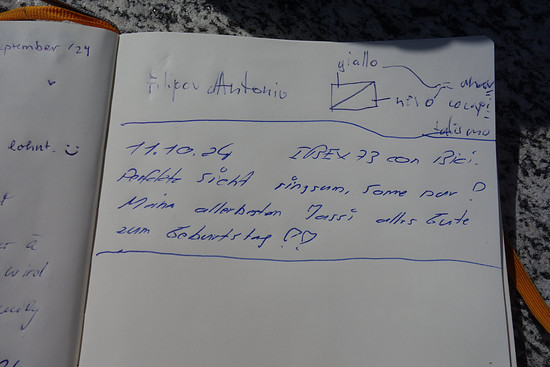 eptember '24
lohnt. :)
wird
Filipov Antonio
giallo
nero
= anar
cocapi
talismo
11.10.24 IBEX 73 con Bici.
Perfekte Sicht ringsum, Sonne pur!
Meine allerbesten Jassi alles Gute
zum Geburtstag! ♡♡